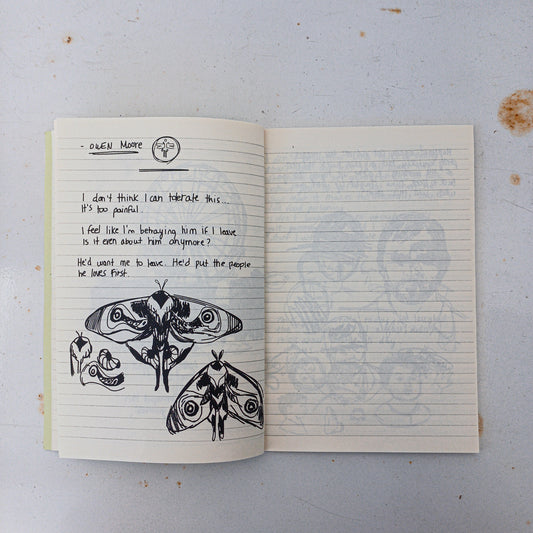 - OWEN Moore
I don't think I can tolerate this...
It's too painful.
I feel like I'm betraying him if I leave
Is it even about him anymore?
He'd want me to leave. He'd put the people
he loves first.